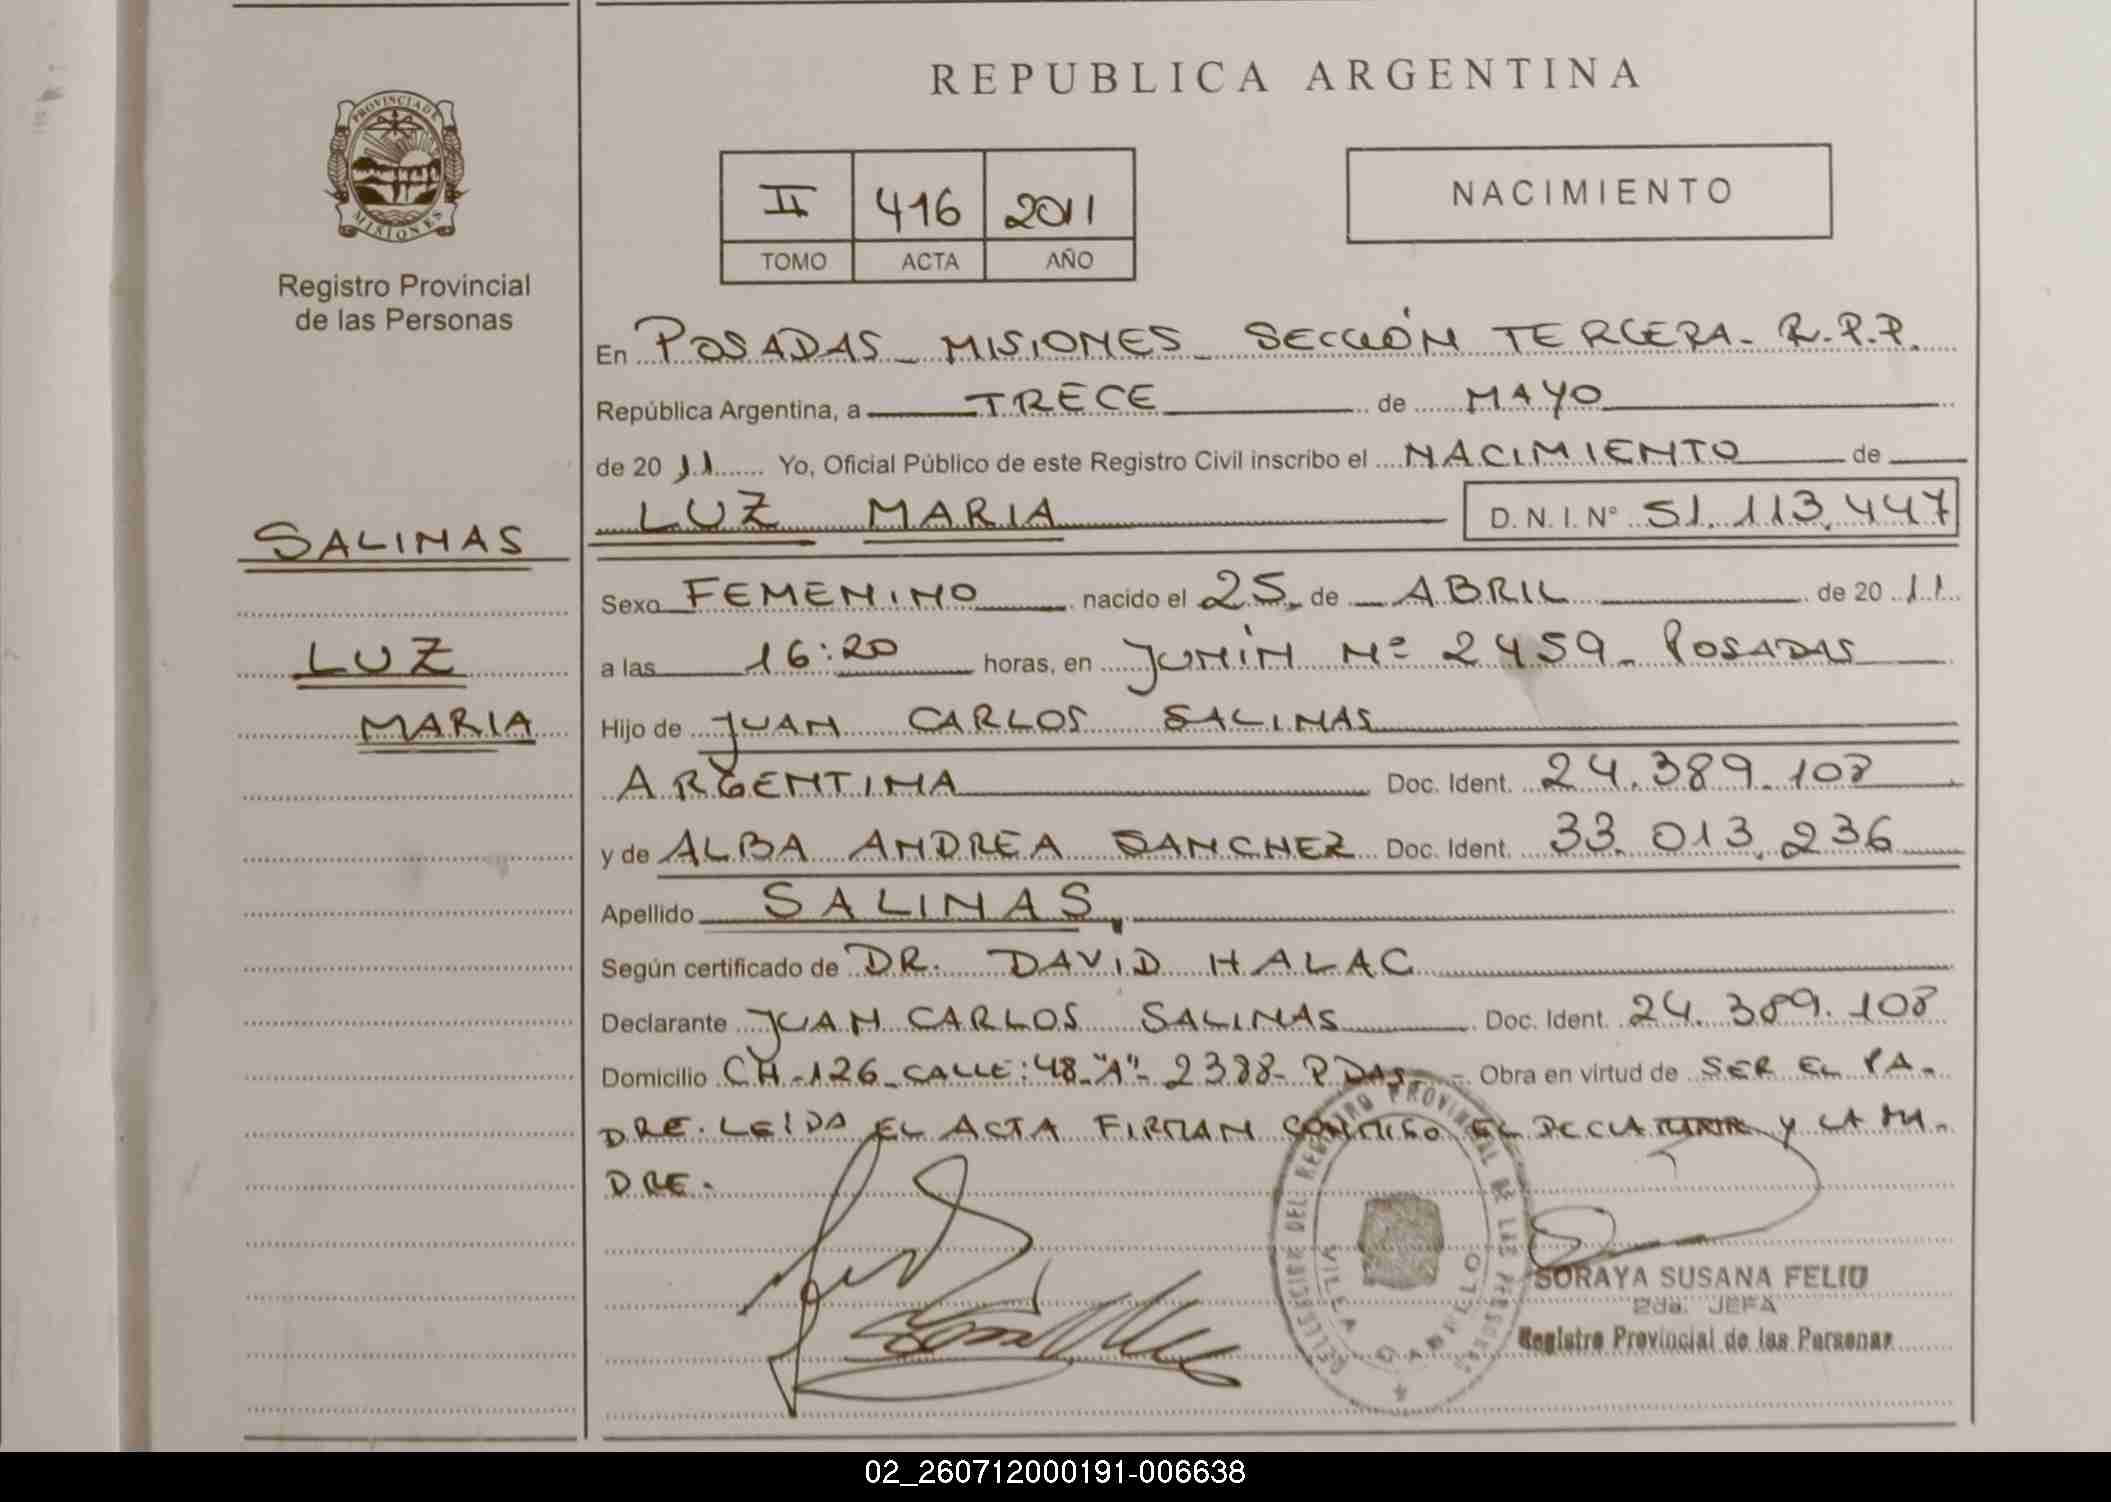 REPUBLICA ARGENTINA
PROVINCIA DE MISIONES
Registro Provincial
de las Personas
II 416 2011
TOMO ACTA AÑO
NACIMIENTO
En POSADAS - MISIONES - SECCIÓN TERCERA - R.P.P.
República Argentina, a TRECE de MAYO
de 2011 Yo, Oficial Público de este Registro Civil inscribo el NACIMIENTO de
LUZ MARIA D.N.I. N° 51.113.447
SALINAS
LUZ
MARIA
Sexo FEMENINO nacido el 25 de ABRIL de 2011
a las 16:20 horas, en JUNÍN Nº 2459 - POSADAS
Hijo de JUAN CARLOS SALINAS
ARGENTINA Doc. Ident. 24.389.108
y de ALBA ANDREA SANCHEZ Doc. Ident. 33.013.236
Apellido SALINAS
Según certificado de DR. DAVID HALAC
Declarante JUAN CARLOS SALINAS Doc. Ident. 24.389.108
Domicilio CH-126-CALLE: 48-"A"- 2388- PDAS. - Obra en virtud de SER EL PA-
DRE. LEIDA EL ACTA FIRMAN CONMIGO EL DECLARANTE Y LA MA-
DRE.
DELEGACION DEL REGISTRO PROVINCIAL DE LAS PERSONAS
VILLA CABELLO
SORAYA SUSANA FELIU
2da. JEFA
Registro Provincial de las Personas
02_260712000191-006638